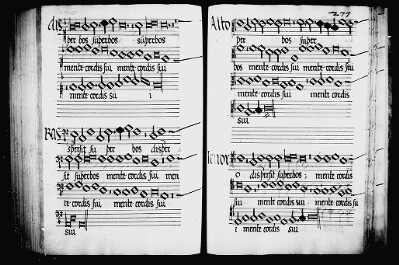 dis
per bos superbos superbos
mente cordis sui mente cordis sui
mente cordis sui i
Bas
spersit su per bos disper
sit superbos mente cordis sui men
te cordis sui mente cordis sui
sui
277
Alto
per bos super
bos mente cordis sui mente cordis sui
bos mente cordis sui mente cordis
sui
Tenor
o dispersit superbos mente cordis
sui mente cordis sui mente cordis su
i mente cordis sui